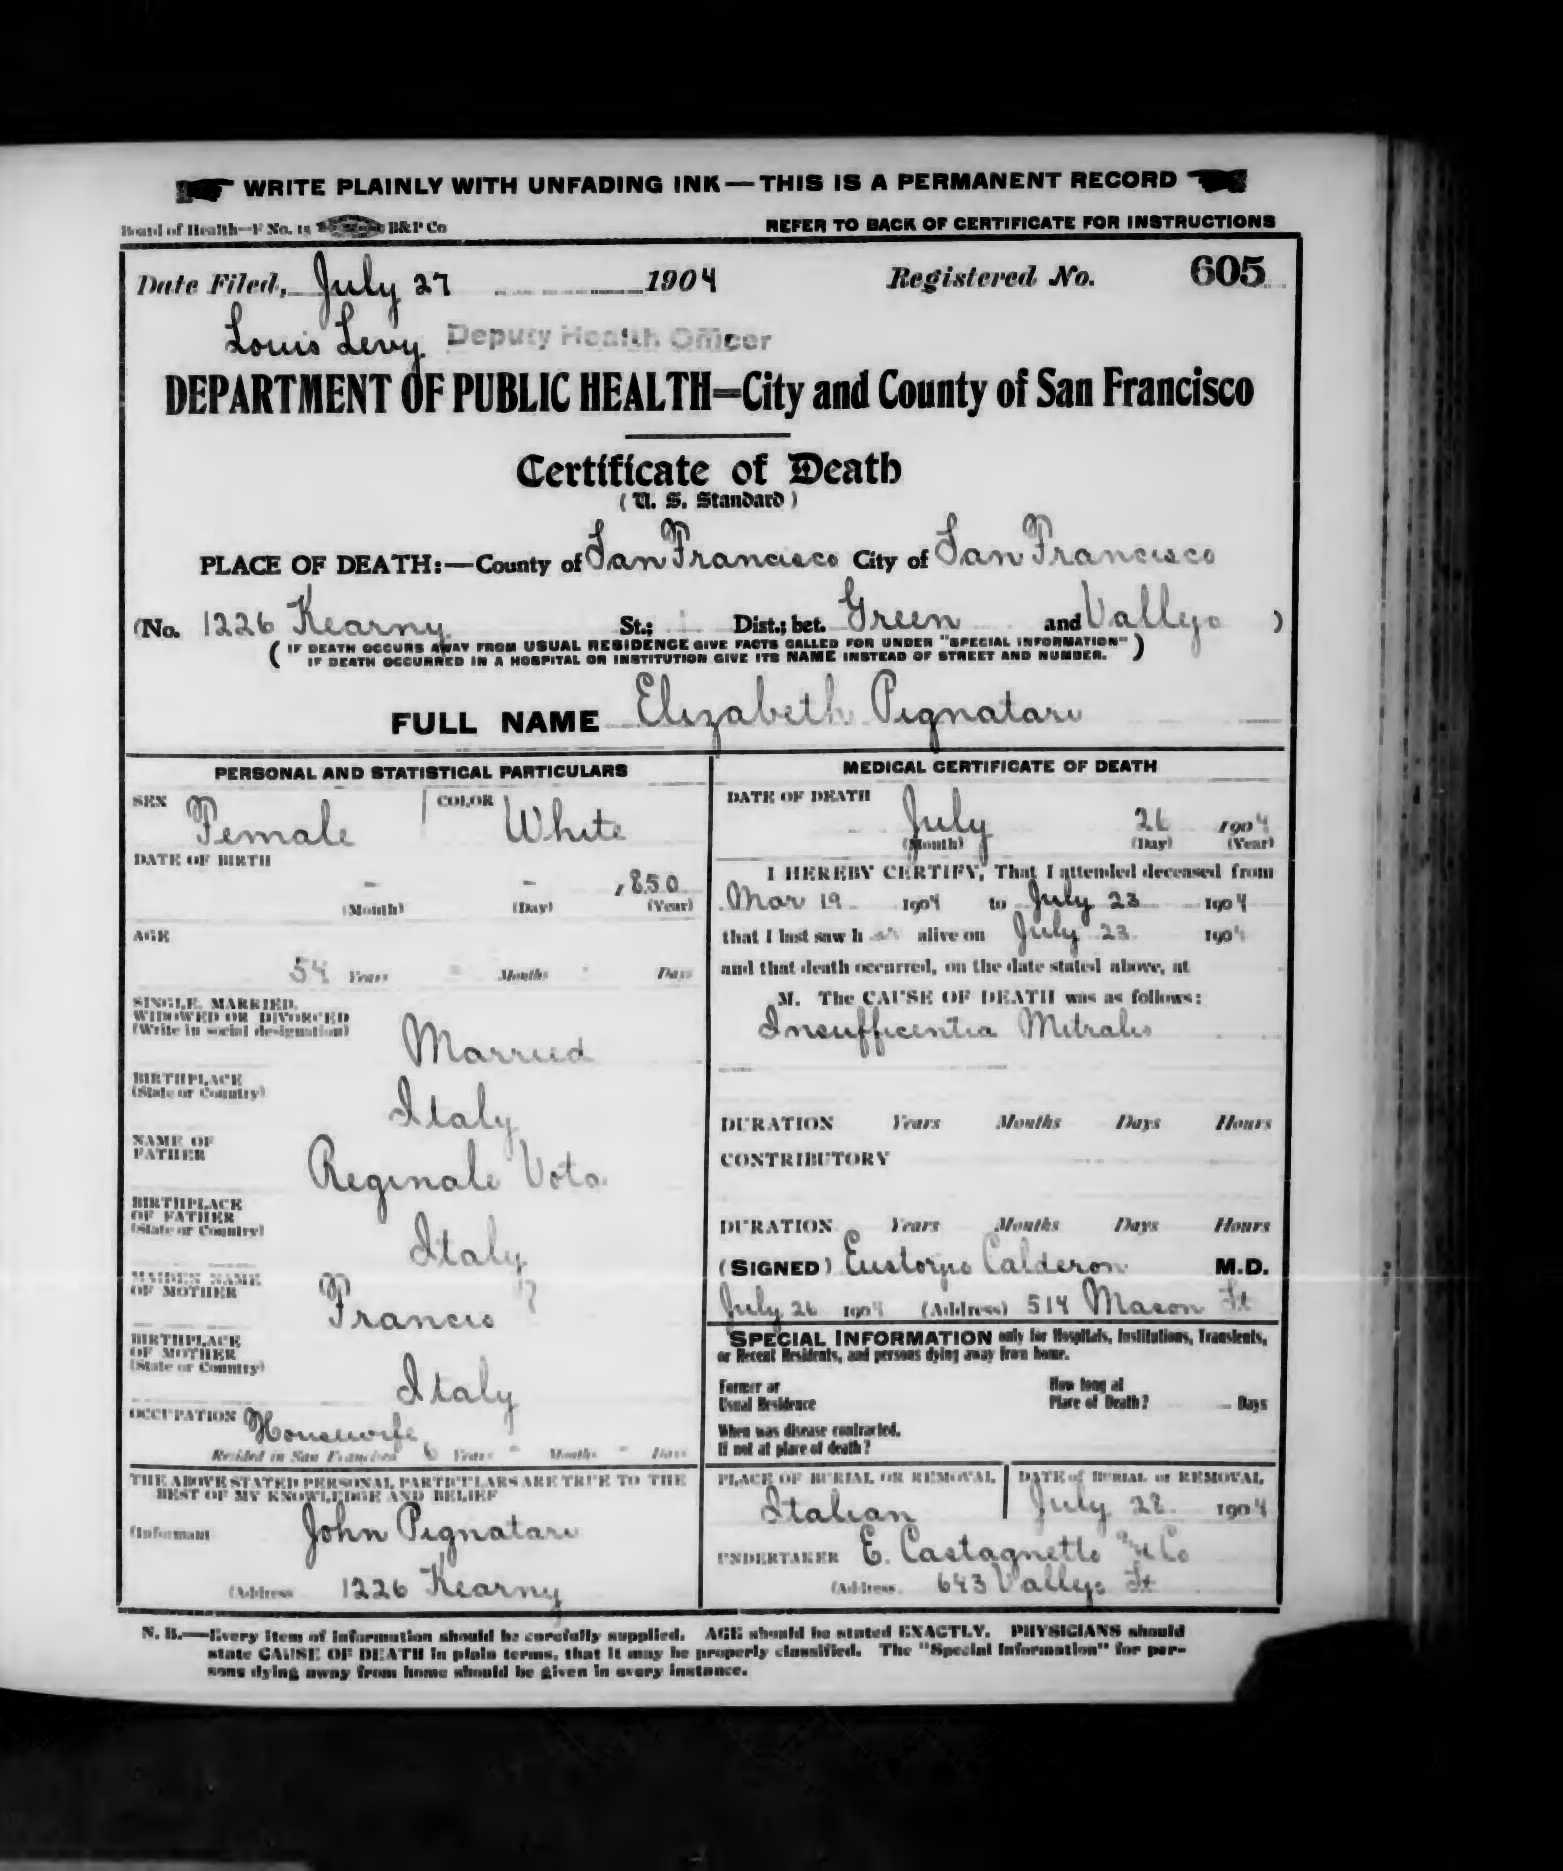 WRITE PLAINLY WITH UNFADING INK—THIS IS A PERMANENT RECORD
Board of Health—F No. 15 B&P Co REFER TO BACK OF CERTIFICATE FOR INSTRUCTIONS
Date Filed, July 27 1904 Registered No. 605
Louis Levy Deputy Health Officer
DEPARTMENT OF PUBLIC HEALTH—City and County of San Francisco
Certificate of Death
(U. S. Standard)
PLACE OF DEATH:—County of San Francisco City of San Francisco
(No. 1226 Kearny St.; Dist.; bet. Green and Vallejo )
( IF DEATH OCCURS AWAY FROM USUAL RESIDENCE GIVE FACTS CALLED FOR UNDER "SPECIAL INFORMATION" )
IF DEATH OCCURRED IN A HOSPITAL OR INSTITUTION GIVE ITS NAME INSTEAD OF STREET AND NUMBER.
FULL NAME Elizabeth Pignatari
PERSONAL AND STATISTICAL PARTICULARS
SEX Female COLOR White
DATE OF BIRTH
- - 1850
(Month) (Day) (Year)
AGE
54 Years Months Days
SINGLE, MARRIED,
WIDOWED OR DIVORCED
(Write in social designation)
Married
BIRTHPLACE
(State or Country)
Italy
NAME OF
FATHER
Reginale Vota
BIRTHPLACE
OF FATHER
(State or Country)
Italy
MAIDEN NAME
OF MOTHER
Francis ?
BIRTHPLACE
OF MOTHER
(State or Country)
Italy
OCCUPATION Housewife
Resided in San Francisco 6 Years - Months - Days
THE ABOVE STATED PERSONAL PARTICULARS ARE TRUE TO THE
BEST OF MY KNOWLEDGE AND BELIEF
(Informant John Pignatari
(Address 1226 Kearny
MEDICAL CERTIFICATE OF DEATH
DATE OF DEATH
July 26 1904
(Month) (Day) (Year)
I HEREBY CERTIFY, That I attended deceased from
Mar 19 1904 to July 23 1904
that I last saw h er alive on July 23 1904
and that death occurred, on the date stated above, at
M. The CAUSE OF DEATH was as follows:
Insufficentia Mitralis
DURATION Years Months Days Hours
CONTRIBUTORY
DURATION Years Months Days Hours
(SIGNED) Eustorjio Calderon M.D.
July 26 1904 (Address) 514 Mason St
SPECIAL INFORMATION only for Hospitals, Institutions, Transients,
or Recent Residents, and persons dying away from home.
Former or
Usual Residence
How long at
Place of Death? Days
When was disease contracted,
If not at place of death?
PLACE OF BURIAL OR REMOVAL
Italian
DATE of BURIAL or REMOVAL
July 28 1904
UNDERTAKER E. Castagnetto & Co
(Address 643 Vallejo St
N. B.—Every item of information should be carefully supplied. AGE should be stated EXACTLY. PHYSICIANS should
state CAUSE OF DEATH in plain terms, that it may be properly classified. The "Special Information" for per-
sons dying away from home should be given in every instance.